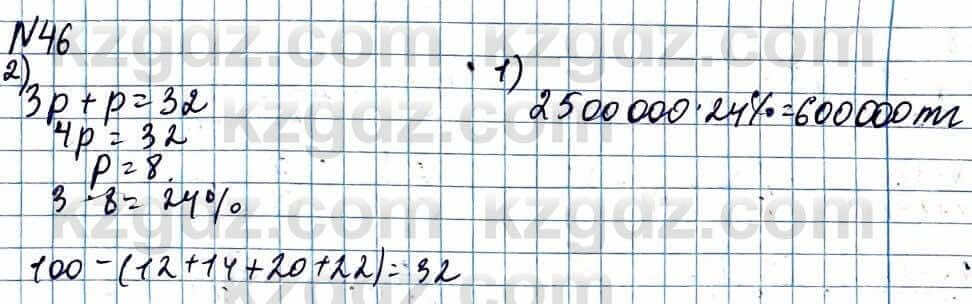 N46
2)
3p + p = 32
4p = 32
p = 8.
3 · 8 = 24%
100 - (12 + 14 + 20 + 22) = 32
1)
2500 000 · 24% = 600 000 тг
kzgdz.com kzgdz.com
kzgdz.com kzgdz.com
kzgdz.com kzgdz.com
kzgdz.com kzgdz.com